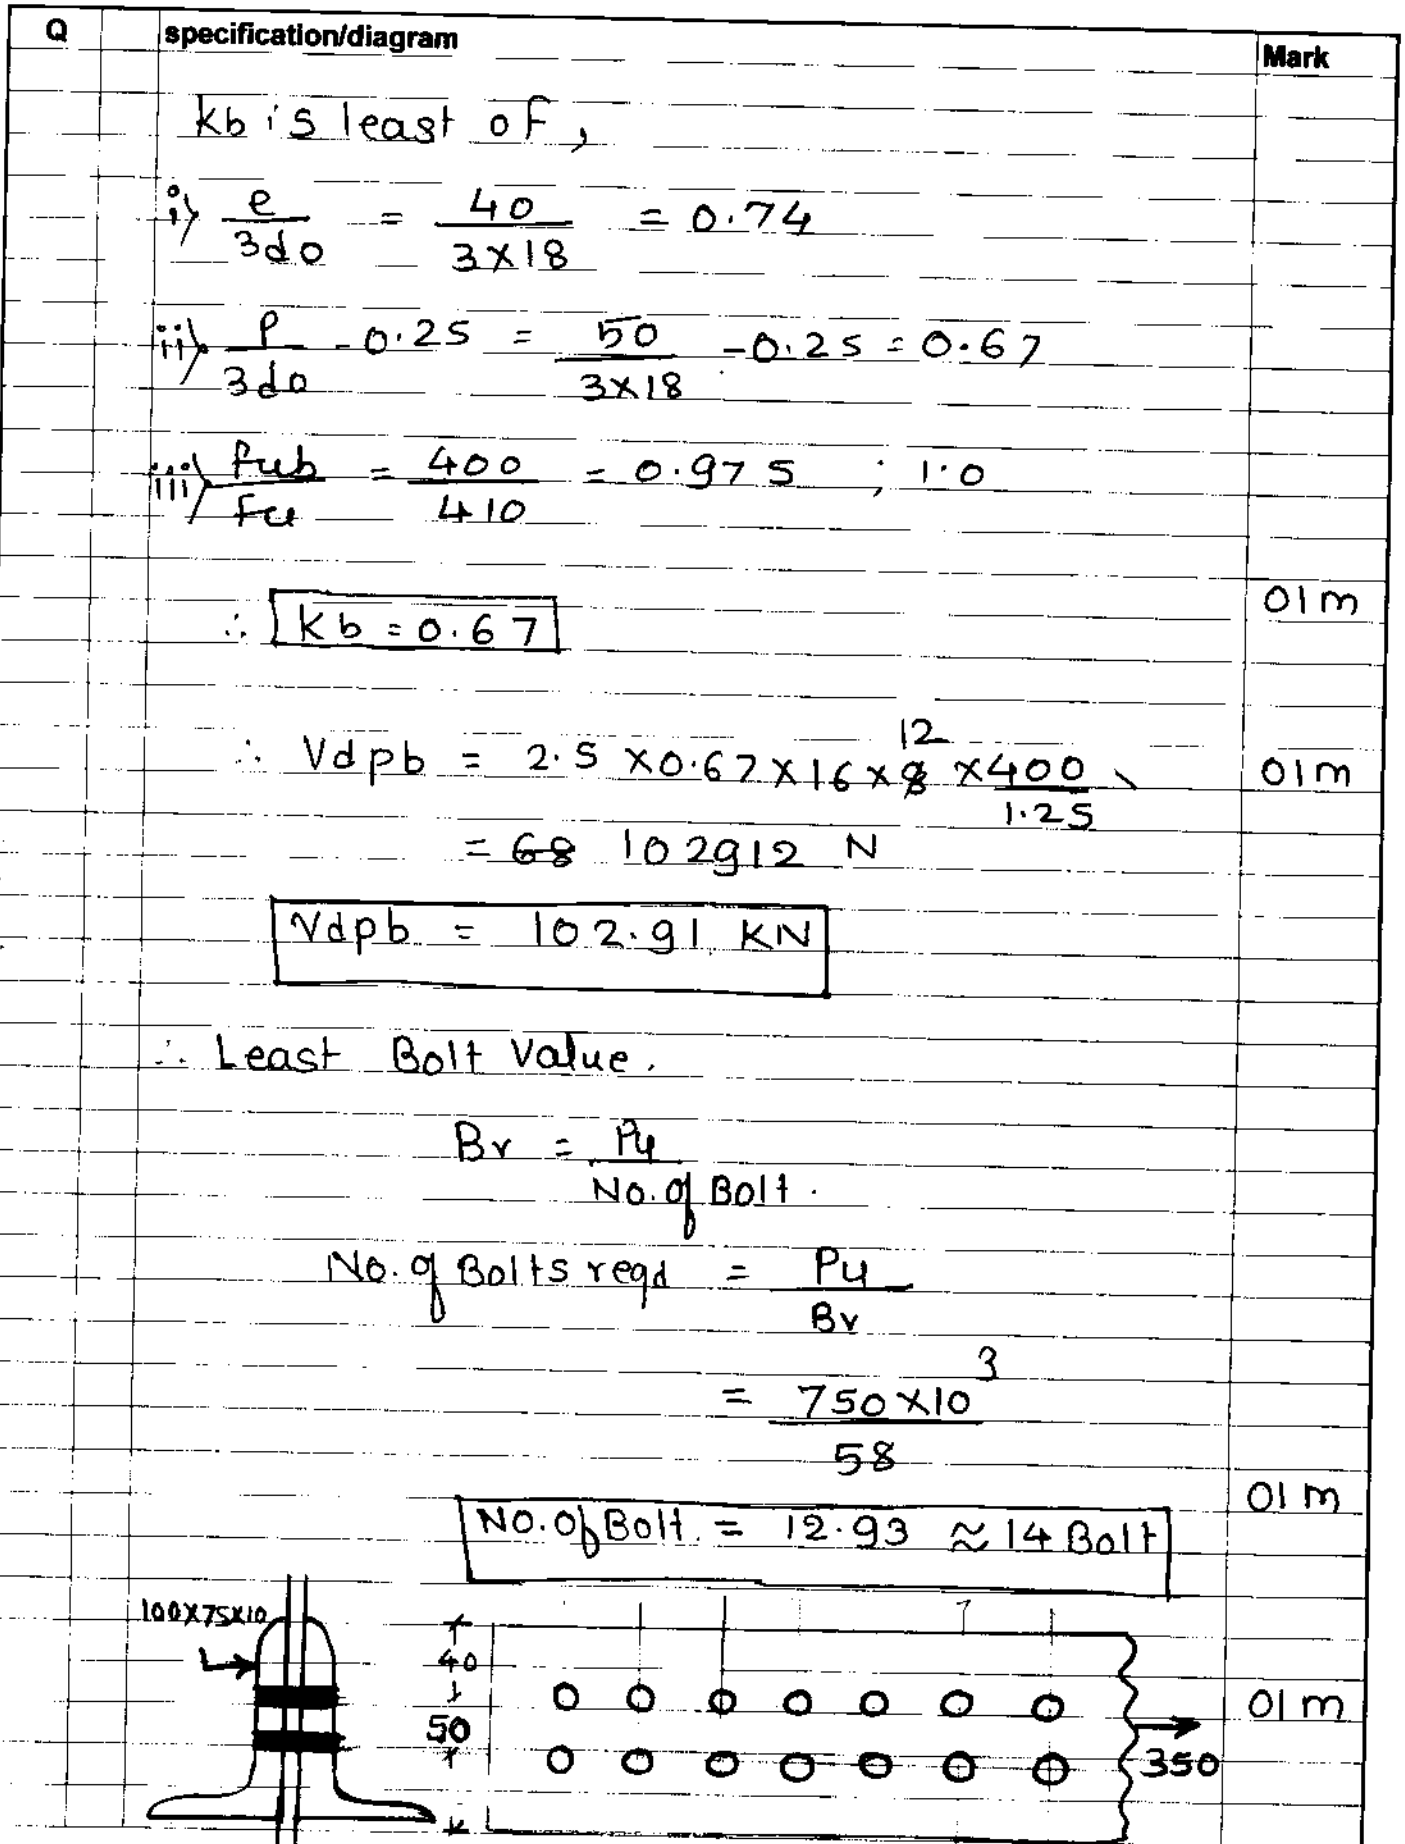 Q specification/diagram Mark
kb is least of,
i) e/3do = 40/3×18 = 0.74
ii) P/3do - 0.25 = 50/3×18 - 0.25 = 0.67
iii) Fub/Fu = 400/410 = 0.975 ; 1.0
∴ kb = 0.67 01m
∴ Vdpb = 2.5 ×0.67×16×8 12 ×400/1.25 01m
= 68 102912 N
Vdpb = 102.91 KN
∴ Least Bolt Value.
Bv = Pu/No. of Bolt.
No. of Bolts reqd = Pu/Bv
= 750×10³/58
No. Of Bolt. = 12.93 ≈ 14 Bolt 01m
100X75X10
40
50
350
01m